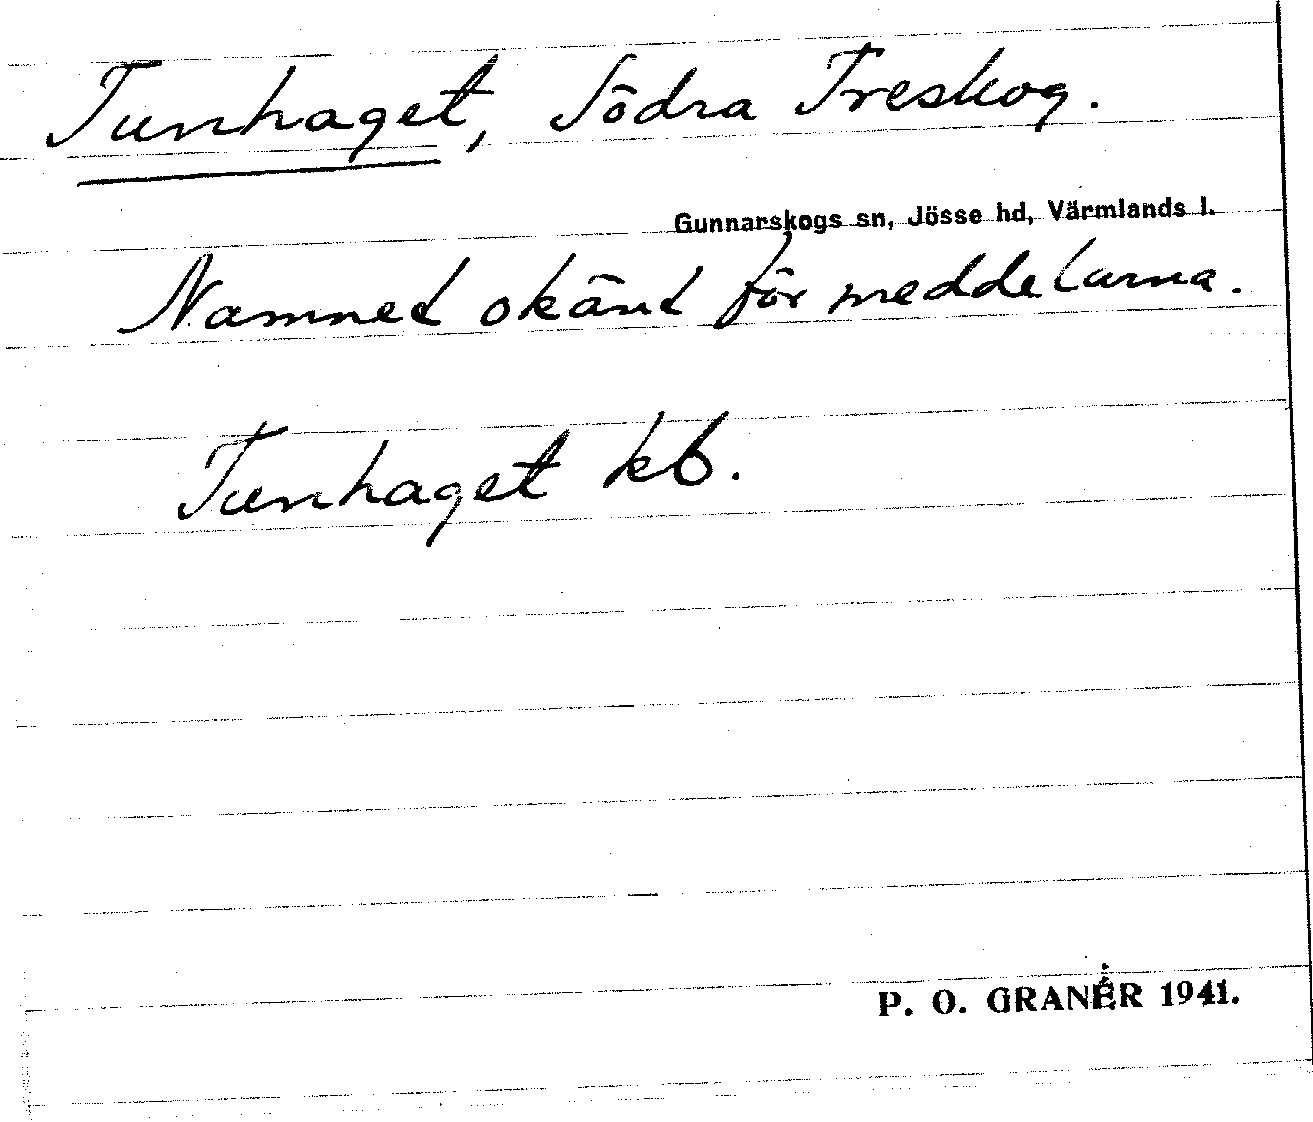 Tunhaget, Södra Treskog.
Gunnarskogs sn, Jösse hd, Värmlands l.
Namnet okänt för meddelarna.
Tunhaget kb.
P. O. GRANÉR 1941.